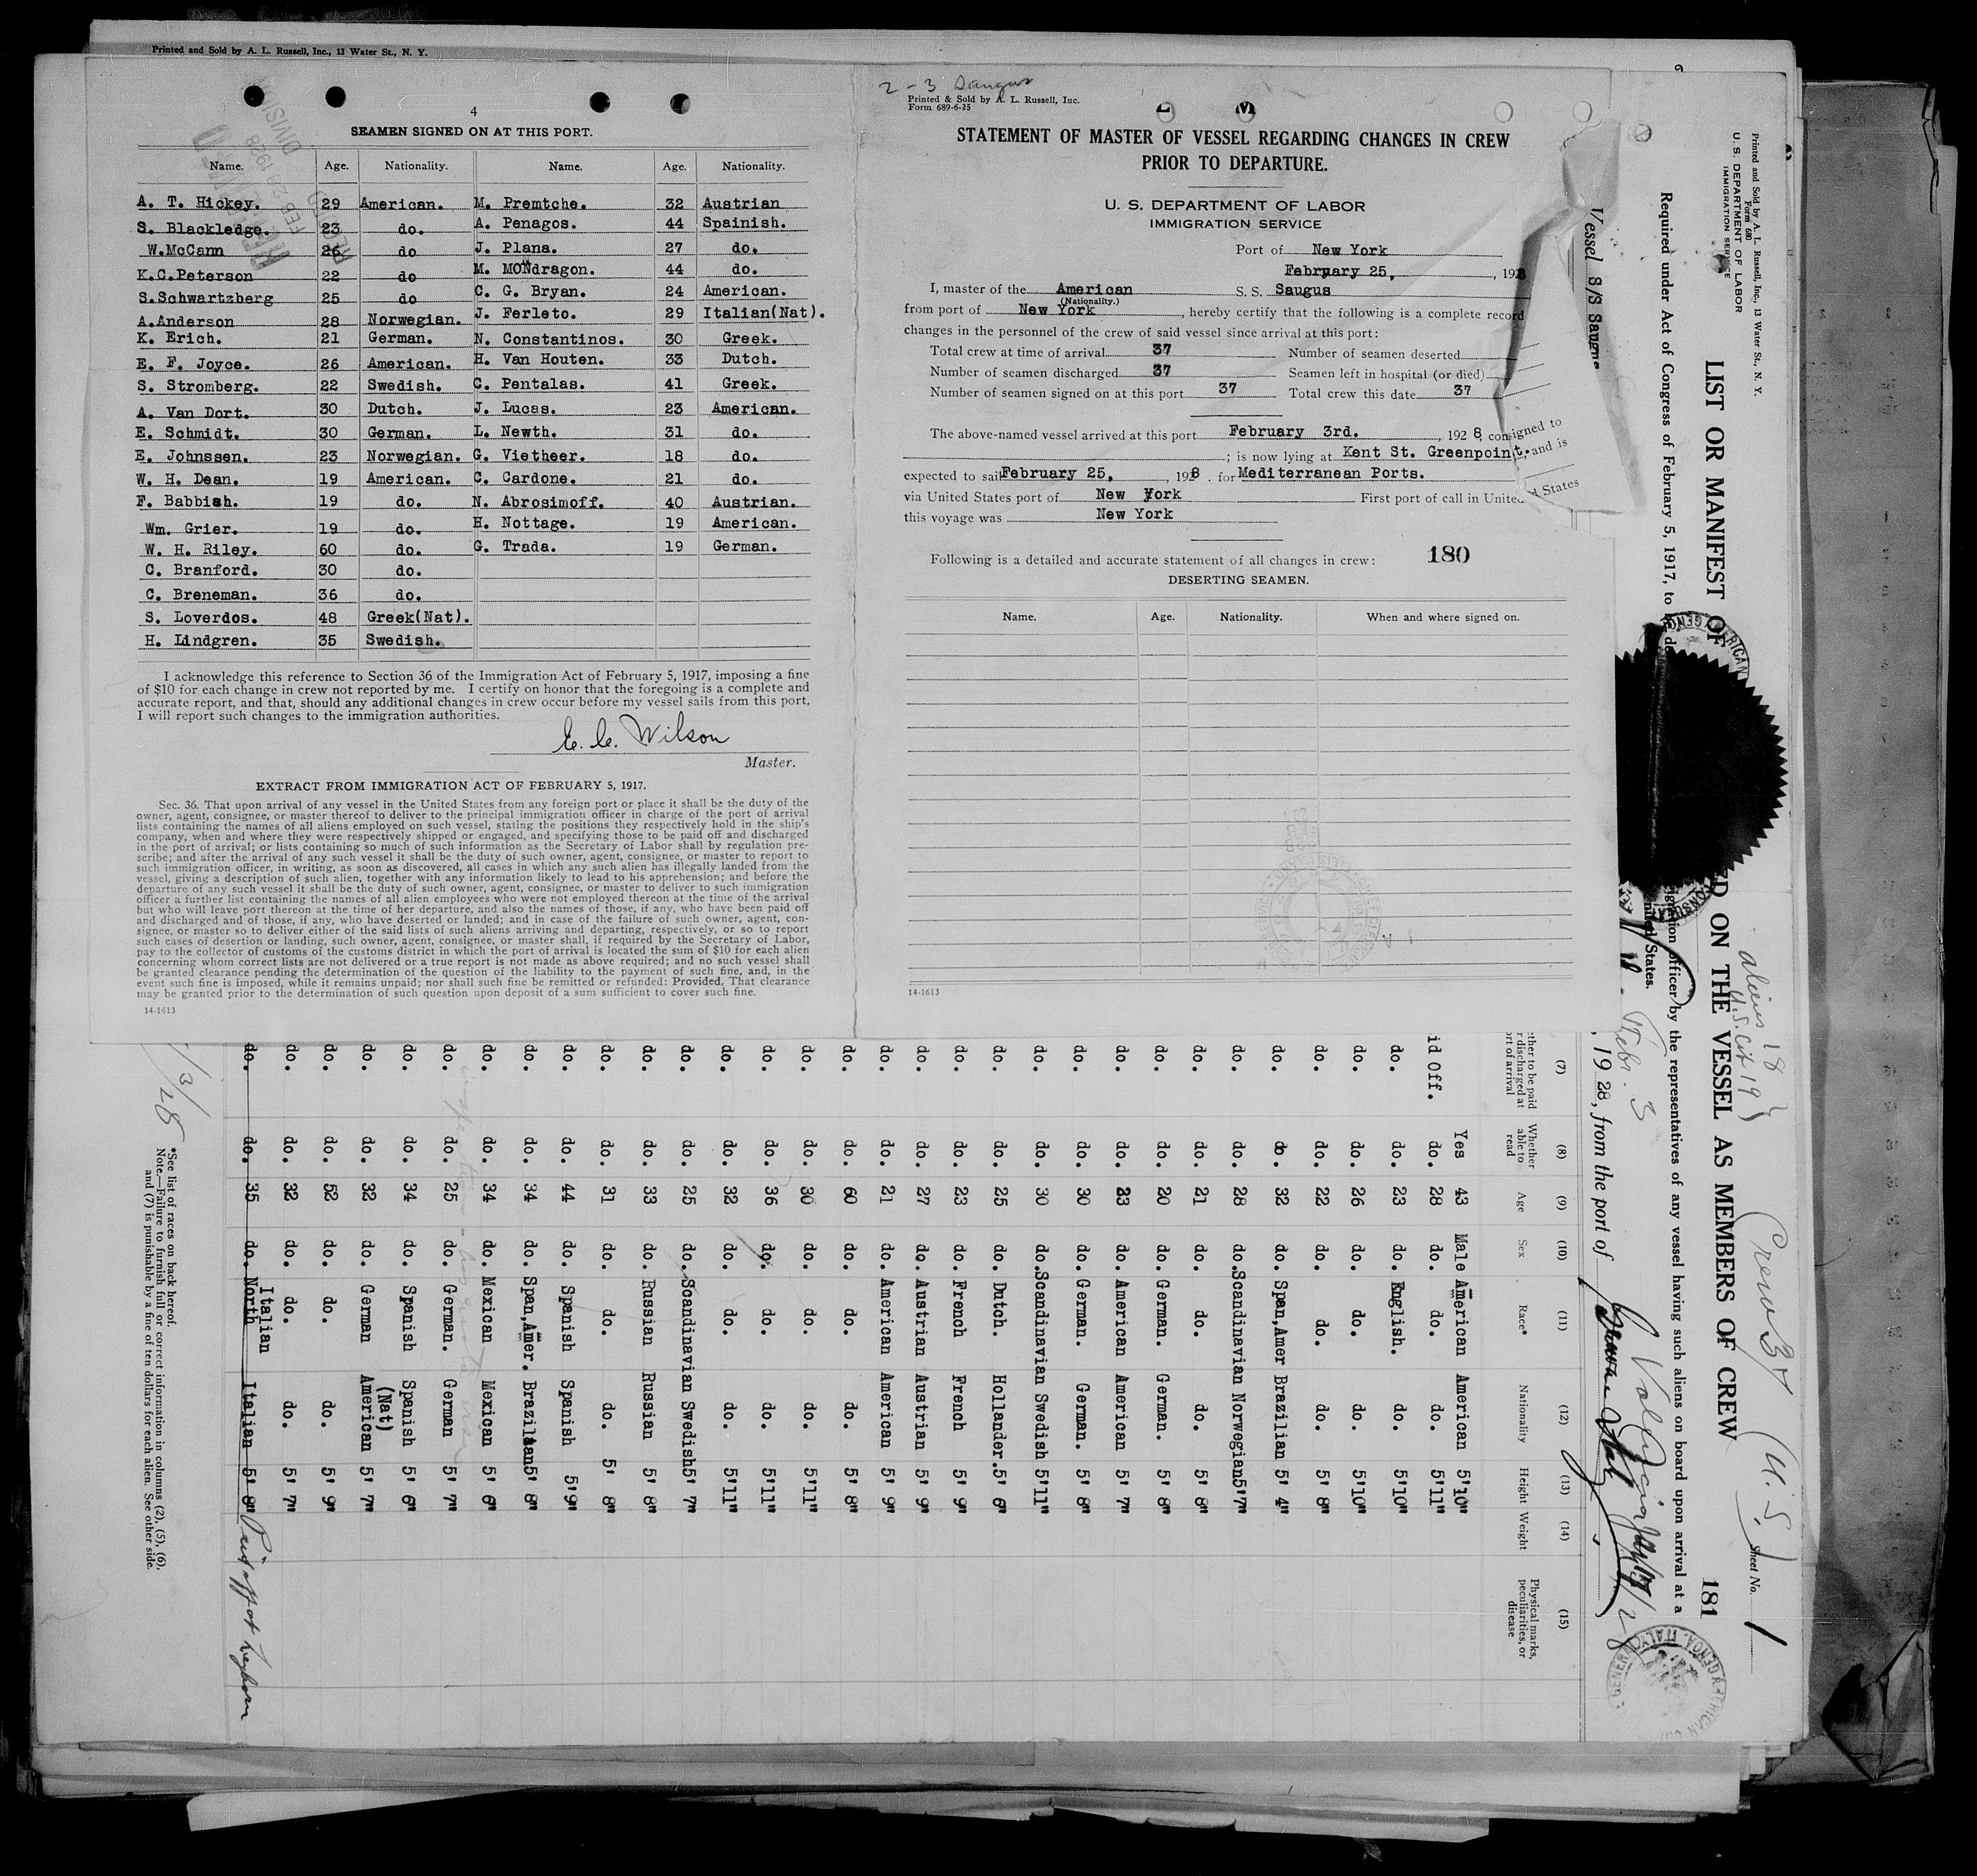 Printed and Sold by A. L. Russell, Inc., 13 Water St., N. Y.
4
SEAMEN SIGNED ON AT THIS PORT.
Name. Age. Nationality. Name. Age. Nationality.
A. T. Hickey. 29 American. M. Premtche. 32 Austrian
S. Blackledge. 23 do. A. Penagos. 44 Spainish.
W.McCann 26 do J. Plana. 27 do.
K.C.Peterson 22 do M. MONdragon. 44 do.
S.Schwartzberg 25 do C. G. Bryan. 24 American.
A.Anderson 28 Norwegian. J. Ferleto. 29 Italian(Nat).
K. Erich. 21 German. N. Constantinos. 30 Greek.
E. F. Joyce. 26 American. H. Van Houten. 33 Dutch.
S. Stromberg. 22 Swedish. C. Pentalas. 41 Greek.
A. Van Dort. 30 Dutch. J. Lucas. 23 American.
E. Schmidt. 30 German. L. Newth. 31 do.
E. Johnssen. 23 Norwegian. G. Vietheer. 18 do.
W. H. Dean. 19 American. C. Cardone. 21 do.
F. Babbish. 19 do. N. Abrosimoff. 40 Austrian.
Wm. Grier. 19 do. H. Nottage. 19 American.
W. H. Riley. 60 do. G. Trada. 19 German.
C. Branford. 30 do.
C. Breneman. 36 do.
S. Loverdos. 48 Greek(Nat).
H. Lindgren. 35 Swedish.
I acknowledge this reference to Section 36 of the Immigration Act of February 5, 1917, imposing a fine
of $10 for each change in crew not reported by me. I certify on honor that the foregoing is a complete and
accurate report, and that, should any additional changes in crew occur before my vessel sails from this port,
I will report such changes to the immigration authorities.
E. C. Wilson
Master.
EXTRACT FROM IMMIGRATION ACT OF FEBRUARY 5, 1917.
Sec. 36. That upon arrival of any vessel in the United States from any foreign port or place it shall be the duty of the
owner, agent, consignee, or master thereof to deliver to the principal immigration officer in charge of the port of arrival
lists containing the names of all aliens employed on such vessel, stating the positions they respectively hold in the ship's
company, when and where they were respectively shipped or engaged, and specifying those to be paid off and discharged
in the port of arrival; or lists containing so much of such information as the Secretary of Labor shall by regulation pre-
scribe; and after the arrival of any such vessel it shall be the duty of such owner, agent, consignee, or master to report to
such immigration officer, in writing, as soon as discovered, all cases in which any such alien has illegally landed from the
vessel, giving a description of such alien, together with any information likely to lead to his apprehension; and before the
departure of any such vessel it shall be the duty of such owner, agent, consignee, or master to deliver to such immigration
officer a further list containing the names of all alien employees who were not employed thereon at the time of the arrival
but who will leave port thereon at the time of her departure, and also the names of those, if any, who have been paid off
and discharged and of those, if any, who have deserted or landed; and in case of the failure of such owner, agent, con-
signee, or master so to deliver either of the said lists of such aliens arriving and departing, respectively, or so to report
such cases of desertion or landing, such owner, agent, consignee, or master shall, if required by the Secretary of Labor,
pay to the collector of customs of the customs district in which the port of arrival is located the sum of $10 for each alien
concerning whom correct lists are not delivered or a true report is not made as above required; and no such vessel shall
be granted clearance pending the determination of the question of the liability to the payment of such fine, and, in the
event such fine is imposed, while it remains unpaid; nor shall such fine be remitted or refunded: Provided, That clearance
may be granted prior to the determination of such question upon deposit of a sum sufficient to cover such fine.
14-1613
2 - 3 Saugus
Printed & Sold by A. L. Russell, Inc.
Form 689-6-25
STATEMENT OF MASTER OF VESSEL REGARDING CHANGES IN CREW
PRIOR TO DEPARTURE.
U. S. DEPARTMENT OF LABOR
IMMIGRATION SERVICE
Port of New York
February 25, , 1928
I, master of the American S. S. Saugus
(Nationality.)
from port of New York , hereby certify that the following is a complete record
changes in the personnel of the crew of said vessel since arrival at this port:
Total crew at time of arrival 37 Number of seamen deserted
Number of seamen discharged 37 Seamen left in hospital (or died)
Number of seamen signed on at this port 37 Total crew this date 37
The above-named vessel arrived at this port February 3rd. , 1928, consigned to
; is now lying at Kent St. Greenpoint. and is
expected to sail February 25, , 1928. for Mediterranean Ports.
via United States port of New York First port of call in United States
this voyage was New York
180
Following is a detailed and accurate statement of all changes in crew:
DESERTING SEAMEN.
Name. Age. Nationality. When and where signed on.
14-1613
Printed and Sold by A. L. Russell, Inc., 13 Water St., N. Y.
Form 680
U. S. DEPARTMENT OF LABOR
IMMIGRATION SERVICE
Sheet No. 1
aliens 18
U.S. Cit 19
Crew 37 (U.S.)
LIST OR MANIFEST OF
ED ON THE VESSEL AS MEMBERS OF CREW 181
Required under Act of Congress of February 5, 1917, to be de
igration officer by the representatives of any vessel having such aliens on board upon arrival at a
nited States.
Vessel S/S Saugus
Febr. 3
, 1928, from the port of
(7) (8) (9) (10) (11) (12) (13) (14) (15)
ther to be paid
r discharged at
ort of arrival
Whether
able to
read
Age Sex Race* Nationality Height Weight
Physical marks,
peculiarities, or
disease
id Off. Yes 43 Male American American 5'10"
do. 28 do. do. do. 5'11"
do. do. 23 do. English. do. 5'10"
do. do. 26 do. do. do. 5'10"
do. do. 22 do. do. do. 5' 8"
do. do. 32 do. Span,Amer Brazilian 5' 4"
do. do. 28 do. Scandinavian Norwegian 5'7"
do. do. 21 do. do. do. 5' 8"
do. do. 20 do. German. German. 5' 8"
do. do. 23 do. American American 5' 7"
do. do. 30 do. German. German. 5' 8"
do. do. 30 do. Scandinavian Swedish 5'11"
do. do. 25 do. Dutch. Hollander. 5' 6"
do. do. 23 do. French French 5' 9"
do. do. 27 do. Austrian Austrian 5' 9"
do. do. 21 do. American American 5' 9"
do. do. 60 do. do. do. 5' 8"
do. do. 30 do. do. do. 5'11"
do. do. 36 do. do. do. 5'11"
do. do. 32 do. do. do. 5'11"
do. do. 25 do. Scandinavian Swedish 5' 7"
do. do. 33 do. Russian Russian 5' 8"
do. do. 31 do. do. do. 5' 8"
do. do. 44 do. Spanish Spanish 5'9"
do. do. 34 do. Span,Amer. Brazilian 5' 8"
do. do. 34 do. Mexican Mexican 5' 6"
do. do. 25 do. German. German 5' 7"
do. do. 34 do. Spanish Spanish 5' 6"
do. do. 32 do. German American (Nat) 5' 7"
do. do. 52 do. do. do. 5' 9"
do. do. 32 do. do. do. 5' 7"
do. do. 35 do. North Italian Italian 5' 8" Paid off at Leghorn
*See list of races on back hereof.
Note.—Failure to furnish full or correct information in columns (2), (5), (6),
and (7) is punishable by a fine of ten dollars for each alien. See other side.